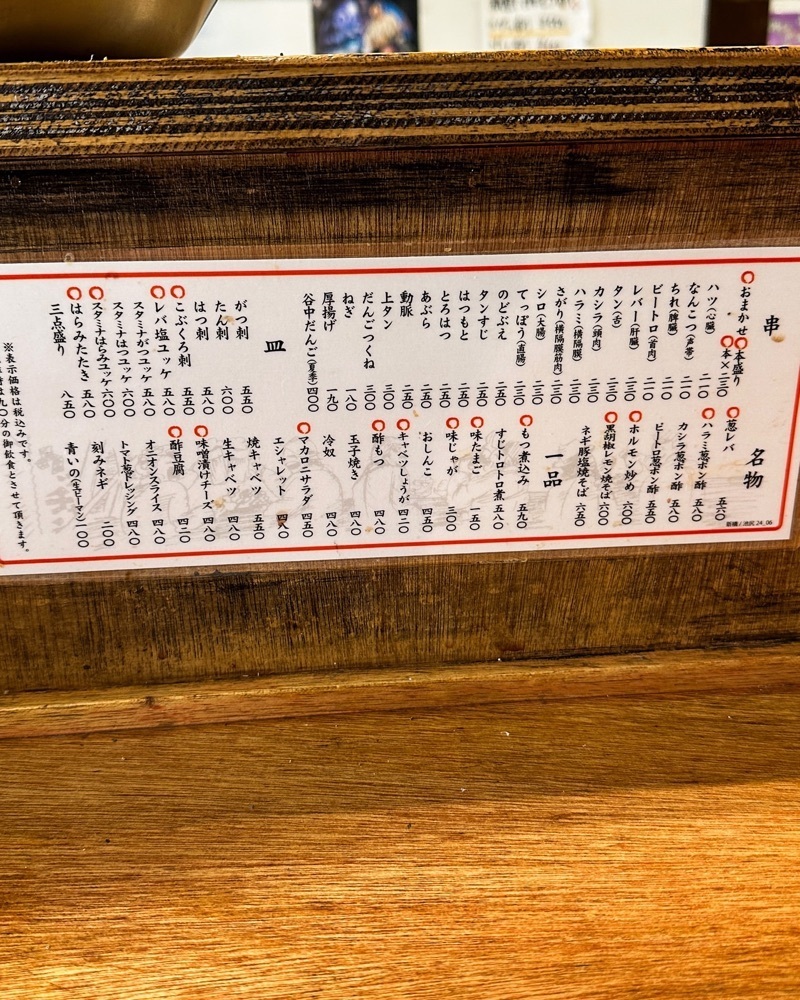 串
おまかせ
本盛り
本×二三〇
ハツ(心臓) 二一〇
なんこつ(声帯) 二一〇
ちれ(脾臓) 二一〇
ピートロ(首肉) 二一〇
レバー(肝臓) 二一〇
タン(舌) 二三〇
カシラ(頭肉) 二三〇
ハラミ(横隔膜) 二三〇
さがり(横隔膜筋肉) 二三〇
シロ(大腸) 二三〇
てっぽう(直腸) 二三〇
のどぶえ 二五〇
タンすじ 二五〇
はつもと 二五〇
とろはつ 二五〇
あぶら 二五〇
動脈 二五〇
上タン 三〇〇
だんごつくね 三〇〇
ねぎ 一八〇
厚揚げ 一九〇
谷中だんご(夏季) 四〇〇
皿
がつ刺 五五〇
たん刺 六〇〇
はつ刺 五八〇
こぶくろ刺 五五〇
レバ塩ユッケ 五八〇
スタミナがつユッケ 五五〇
スタミナはつユッケ 六〇〇
スタミナはらみユッケ 六〇〇
はらみたたき 五八〇
三点盛り 八五〇
名物
葱レバ 五六〇
ハラミ葱ポン酢 五八〇
カシラ葱ポン酢 五八〇
ピートロ葱ポン酢 五五〇
ホルモン炒め 六〇〇
黒胡椒レモン焼そば 六〇〇
ネギ豚塩焼そば 六五〇
一品
もつ煮込み 五九〇
すじトロトロ煮 五八〇
味たまご 一五〇
味じゃが 三〇〇
おしんこ 四五〇
キャベツしょうが 四二〇
酢もつ 四八〇
玉子焼き 四八〇
冷奴 四八〇
マカロニサラダ 四五〇
エシャレット 四八〇
焼キャベツ 五五〇
生キャベツ 四八〇
味噌漬けチーズ 四八〇
酢豆腐 四二〇
オニオンスライス 四八〇
トマト葱ドレッシング 四八〇
刻みネギ 二〇〇
青いの(生ピーマン) 一〇〇
※表示価格は税込みです。
分の御飲食とさせて頂きます。
24_06